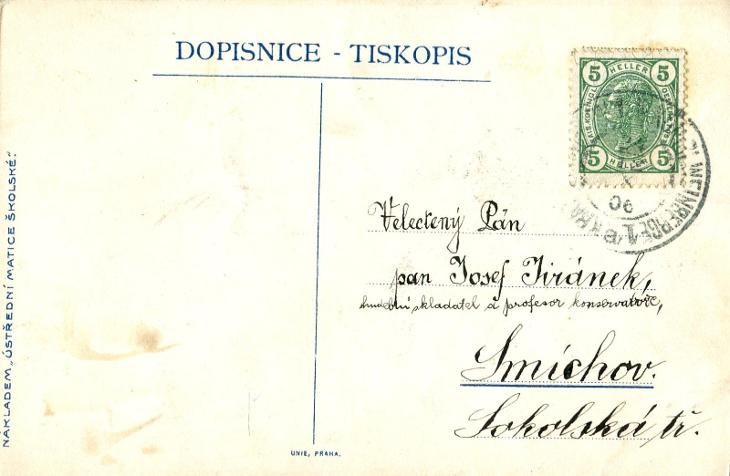 DOPISNICE - TISKOPIS
5 HELLER 5
5 HELLER 5
WEINBERGE 1
06
Velectený Pán
pan Josef Jiránek,
hudební skladatel a profesor konservatoře,
Smíchov.
Sokolská tř.
NÁKLADEM „ÚSTŘEDNÍ MATICE ŠKOLSKÉ.“
UNIE, PRAHA.